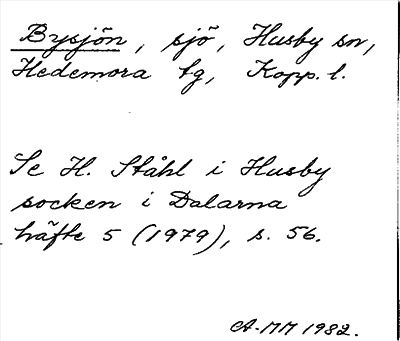 Bysjön, sjö, Husby sn,
Hedemora tg, Kopp. l.
Se H. Ståhl i Husby
socken i Dalarna
häfte 5 (1979), s. 56.
A-MM 1982.